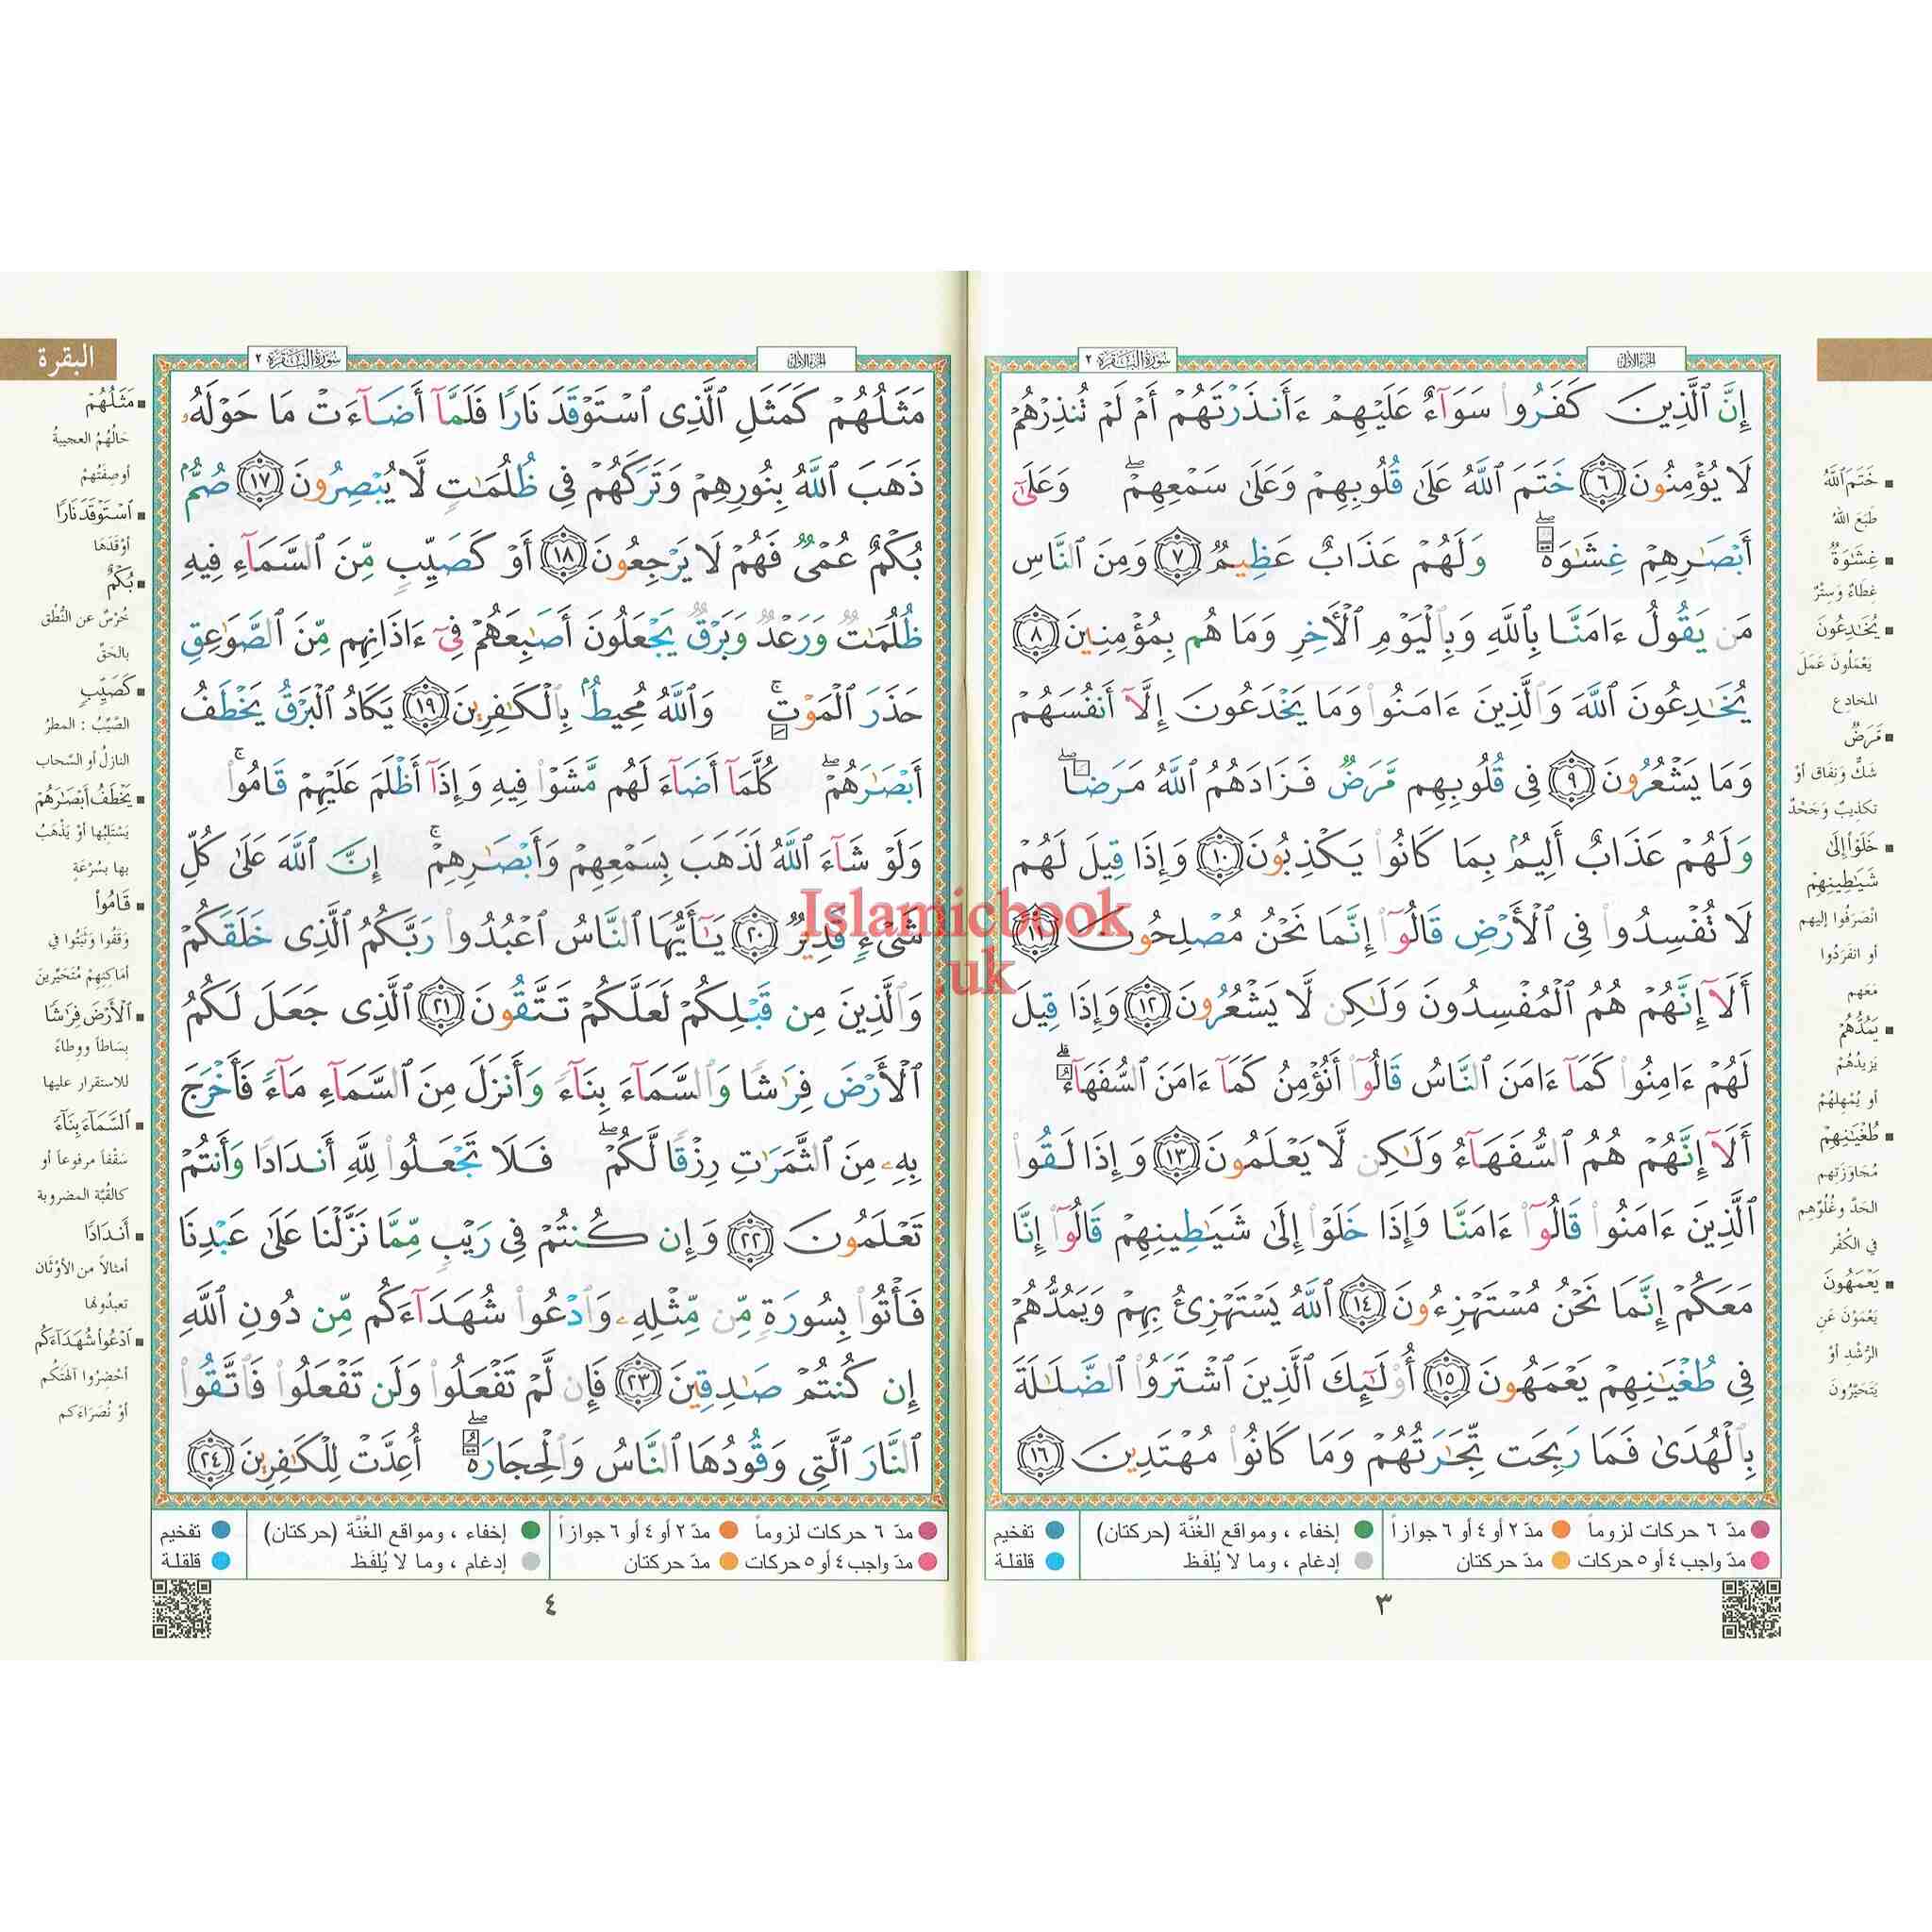 الجزء الأول
سورة البقرة ٢
إِنَّ ٱلَّذِينَ كَفَرُوا۟ سَوَآءٌ عَلَيْهِمْ ءَأَنذَرْتَهُمْ أَمْ لَمْ تُنذِرْهُمْ
لَا يُؤْمِنُونَ ٦ خَتَمَ ٱللَّهُ عَلَىٰ قُلُوبِهِمْ وَعَلَىٰ سَمْعِهِمْ ۖ وَعَلَىٰٓ
أَبْصَـٰرِهِمْ غِشَـٰوَةٌ ۖ وَلَهُمْ عَذَابٌ عَظِيمٌ ٧ وَمِنَ ٱلنَّاسِ
مَن يَقُولُ ءَامَنَّا بِٱللَّهِ وَبِٱلْيَوْمِ ٱلْأَخِرِ وَمَا هُم بِمُؤْمِنِينَ ٨
يُخَـٰدِعُونَ ٱللَّهَ وَٱلَّذِينَ ءَامَنُوا۟ وَمَا يَخْدَعُونَ إِلَّآ أَنفُسَهُمْ
وَمَا يَشْعُرُونَ ٩ فِى قُلُوبِهِم مَّرَضٌ فَزَادَهُمُ ٱللَّهُ مَرَضًا ۖ
وَلَهُمْ عَذَابٌ أَلِيمٌۢ بِمَا كَانُوا۟ يَكْذِبُونَ ١٠ وَإِذَا قِيلَ لَهُمْ
لَا تُفْسِدُوا۟ فِى ٱلْأَرْضِ قَالُوٓا۟ إِنَّمَا نَحْنُ مُصْلِحُونَ ١١
أَلَآ إِنَّهُمْ هُمُ ٱلْمُفْسِدُونَ وَلَـٰكِن لَّا يَشْعُرُونَ ١٢ وَإِذَا قِيلَ
لَهُمْ ءَامِنُوا۟ كَمَآ ءَامَنَ ٱلنَّاسُ قَالُوٓا۟ أَنُؤْمِنُ كَمَآ ءَامَنَ ٱلسُّفَهَآءُ ۗ
أَلَآ إِنَّهُمْ هُمُ ٱلسُّفَهَآءُ وَلَـٰكِن لَّا يَعْلَمُونَ ١٣ وَإِذَا لَقُوا۟
ٱلَّذِينَ ءَامَنُوا۟ قَالُوٓا۟ ءَامَنَّا وَإِذَا خَلَوْا۟ إِلَىٰ شَيَـٰطِينِهِمْ قَالُوٓا۟ إِنَّا
مَعَكُمْ إِنَّمَا نَحْنُ مُسْتَهْزِءُونَ ١٤ ٱللَّهُ يَسْتَهْزِئُ بِهِمْ وَيَمُدُّهُمْ
فِى طُغْيَـٰنِهِمْ يَعْمَهُونَ ١٥ أُو۟لَـٰٓئِكَ ٱلَّذِينَ ٱشْتَرَوُا۟ ٱلضَّلَـٰلَةَ
بِٱلْهُدَىٰ فَمَا رَبِحَت تِّجَـٰرَتُهُمْ وَمَا كَانُوا۟ مُهْتَدِينَ ١٦
خَتَمَ ٱللَّهُ
طَبَعَ اللهُ
غِشَـٰوَةٌ
غِطَاءٌ وَسِتْرٌ
يُخَـٰدِعُونَ
يَعْمَلُونَ عَمَلَ
المخادِع
مَّرَضٌ
شَكٌّ وَنِفَاق أوْ
تكذِيبٌ وَجَحْدٌ
خَلَوْا۟ إِلَىٰ
شَيَـٰطِينِهِمْ
انْصَرَفُوا إليهم
أو انفَرَدُوا
مَعَهم
يَمُدُّهُمْ
يَزيدُهُمْ
أو يُمْهِلهُمْ
طُغْيَـٰنِهِمْ
مُجَاوَزَتِهم
الحَدّ وغُلُوِّهِم
في الكُفْر
يَعْمَهُونَ
يَعْمَوْنَ عَنِ
الرُّشْد أوْ
يَتَحَيّرُونَ
مدّ ٦ حركات لزوماً
مدّ ٢ أو ٤ أو ٦ جوازاً
إخفاء ، ومواقع الغُنَّة (حركتان)
تفخيم
مدّ واجب ٤ أو ٥ حركات
مدّ حركتان
إدغام ، وما لا يُلفَظ
قلقلة
٣
الجزء الأول
سورة البقرة ٢
البقرة
مَثَلُهُمْ كَمَثَلِ ٱلَّذِى ٱسْتَوْقَدَ نَارًا فَلَمَّآ أَضَآءَتْ مَا حَوْلَهُۥ
ذَهَبَ ٱللَّهُ بِنُورِهِمْ وَتَرَكَهُمْ فِى ظُلُمَـٰتٍ لَّا يُبْصِرُونَ ١٧ صُمٌّۢ
بُكْمٌ عُمْىٌ فَهُمْ لَا يَرْجِعُونَ ١٨ أَوْ كَصَيِّبٍ مِّنَ ٱلسَّمَآءِ فِيهِ
ظُلُمَـٰتٌ وَرَعْدٌ وَبَرْقٌ يَجْعَلُونَ أَصَـٰبِعَهُمْ فِىٓ ءَاذَانِهِم مِّنَ ٱلصَّوَٰعِقِ
حَذَرَ ٱلْمَوْتِ ۚ وَٱللَّهُ مُحِيطٌۢ بِٱلْكَـٰفِرِينَ ١٩ يَكَادُ ٱلْبَرْقُ يَخْطَفُ
أَبْصَـٰرَهُمْ ۖ كُلَّمَآ أَضَآءَ لَهُم مَّشَوْا۟ فِيهِ وَإِذَآ أَظْلَمَ عَلَيْهِمْ قَامُوا۟ ۚ
وَلَوْ شَآءَ ٱللَّهُ لَذَهَبَ بِسَمْعِهِمْ وَأَبْصَـٰرِهِمْ ۚ إِنَّ ٱللَّهَ عَلَىٰ كُلِّ
شَىْءٍ قَدِيرٌ ٢٠ يَـٰٓأَيُّهَا ٱلنَّاسُ ٱعْبُدُوا۟ رَبَّكُمُ ٱلَّذِى خَلَقَكُمْ
وَٱلَّذِينَ مِن قَبْلِكُمْ لَعَلَّكُمْ تَتَّقُونَ ٢١ ٱلَّذِى جَعَلَ لَكُمُ
ٱلْأَرْضَ فِرَٰشًا وَٱلسَّمَآءَ بِنَآءً وَأَنزَلَ مِنَ ٱلسَّمَآءِ مَآءً فَأَخْرَجَ
بِهِۦ مِنَ ٱلثَّمَرَٰتِ رِزْقًا لَّكُمْ ۖ فَلَا تَجْعَلُوا۟ لِلَّهِ أَندَادًا وَأَنتُمْ
تَعْلَمُونَ ٢٢ وَإِن كُنتُمْ فِى رَيْبٍ مِّمَّا نَزَّلْنَا عَلَىٰ عَبْدِنَا
فَأْتُوا۟ بِسُورَةٍ مِّن مِّثْلِهِۦ وَٱدْعُوا۟ شُهَدَآءَكُم مِّن دُونِ ٱللَّهِ
إِن كُنتُمْ صَـٰدِقِينَ ٢٣ فَإِن لَّمْ تَفْعَلُوا۟ وَلَن تَفْعَلُوا۟ فَٱتَّقُوا۟
ٱلنَّارَ ٱلَّتِى وَقُودُهَا ٱلنَّاسُ وَٱلْحِجَارَةُ ۖ أُعِدَّتْ لِلْكَـٰفِرِينَ ٢٤
مَثَلُهُمْ
حَالُهُمُ العجيبةُ
أو صِفَتُهمْ
ٱسْتَوْقَدَ نَارًا
أوْقدَهَا
بُكْمٌ
خُرْسٌ عن النُّطْق
بالحَقّ
كَصَيِّبٍ
الصَّيِّبُ : المطرُ
النازلُ أو السَّحاب
يَخْطَفُ أَبْصَـٰرَهُمْ
يَسْتَلِبُها أوْ يَذْهَبُ
بها بسُرْعَةٍ
قَامُوا۟
وَقَفُوا وَثَبَتُوا في
أمَاكِنِهِمْ مُتَحَيِّرينَ
ٱلْأَرْضَ فِرَٰشًا
بِسَاطاً ووِطاءً
للاستقرار عليها
ٱلسَّمَآءَ بِنَآءً
سَقْفاً مرفوعاً أو
كالقُبّة المضروبة
أَندَادًا
أمثالاً من الأوْثَان
تعبدُونها
ٱدْعُوا۟ شُهَدَآءَكُم
أحْضِرُوا آلهَتَكُم
أوْ نُصَرَاءَكم
مدّ ٦ حركات لزوماً
مدّ ٢ أو ٤ أو ٦ جوازاً
إخفاء ، ومواقع الغُنَّة (حركتان)
تفخيم
مدّ واجب ٤ أو ٥ حركات
مدّ حركتان
إدغام ، وما لا يُلفَظ
قلقلة
٤
Islamicbook
.uk